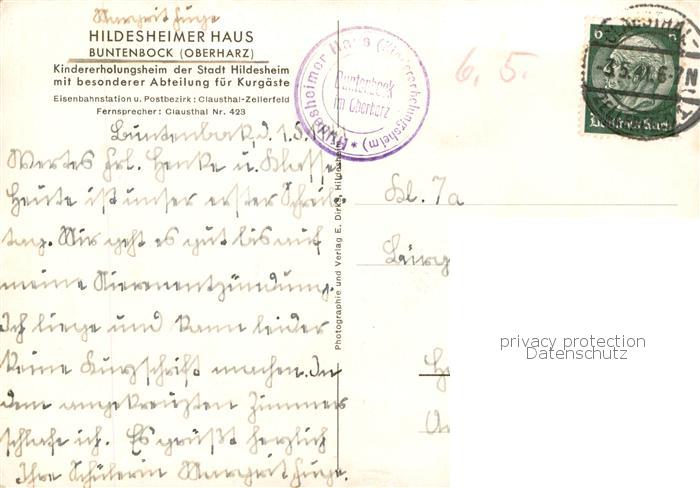 Margrit Huge
HILDESHEIMER HAUS
BUNTENBOCK (OBERHARZ)
Kindererholungsheim der Stadt Hildesheim
mit besonderer Abteilung für Kurgäste
Eisenbahnstation u. Postbezirk: Clausthal-Zellerfeld
Fernsprecher: Clausthal Nr. 423
Hildesheimer Haus (Kindererholungsheim) *
Buntenbock
im Oberharz
6. 5.
6
Deutsches Reich
Buntenbock, d. 1.5.
Wertes Frl. Henke u. Klasse
Heute ist unser erster Schreib-
tag. Mir geht es gut bis auf
meine Nierenentzündung.
Ich liege und kann leider
keine Kurzschrift machen. In
dem angekreuzten Zimmer
schlafe ich. Es grüßt herzlich
Ihre Schülerin Margrit Huge.
Photographie und Verlag E. Dirks, Hildesheim
Kl. 7a
Bürg
privacy protection
Datenschutz